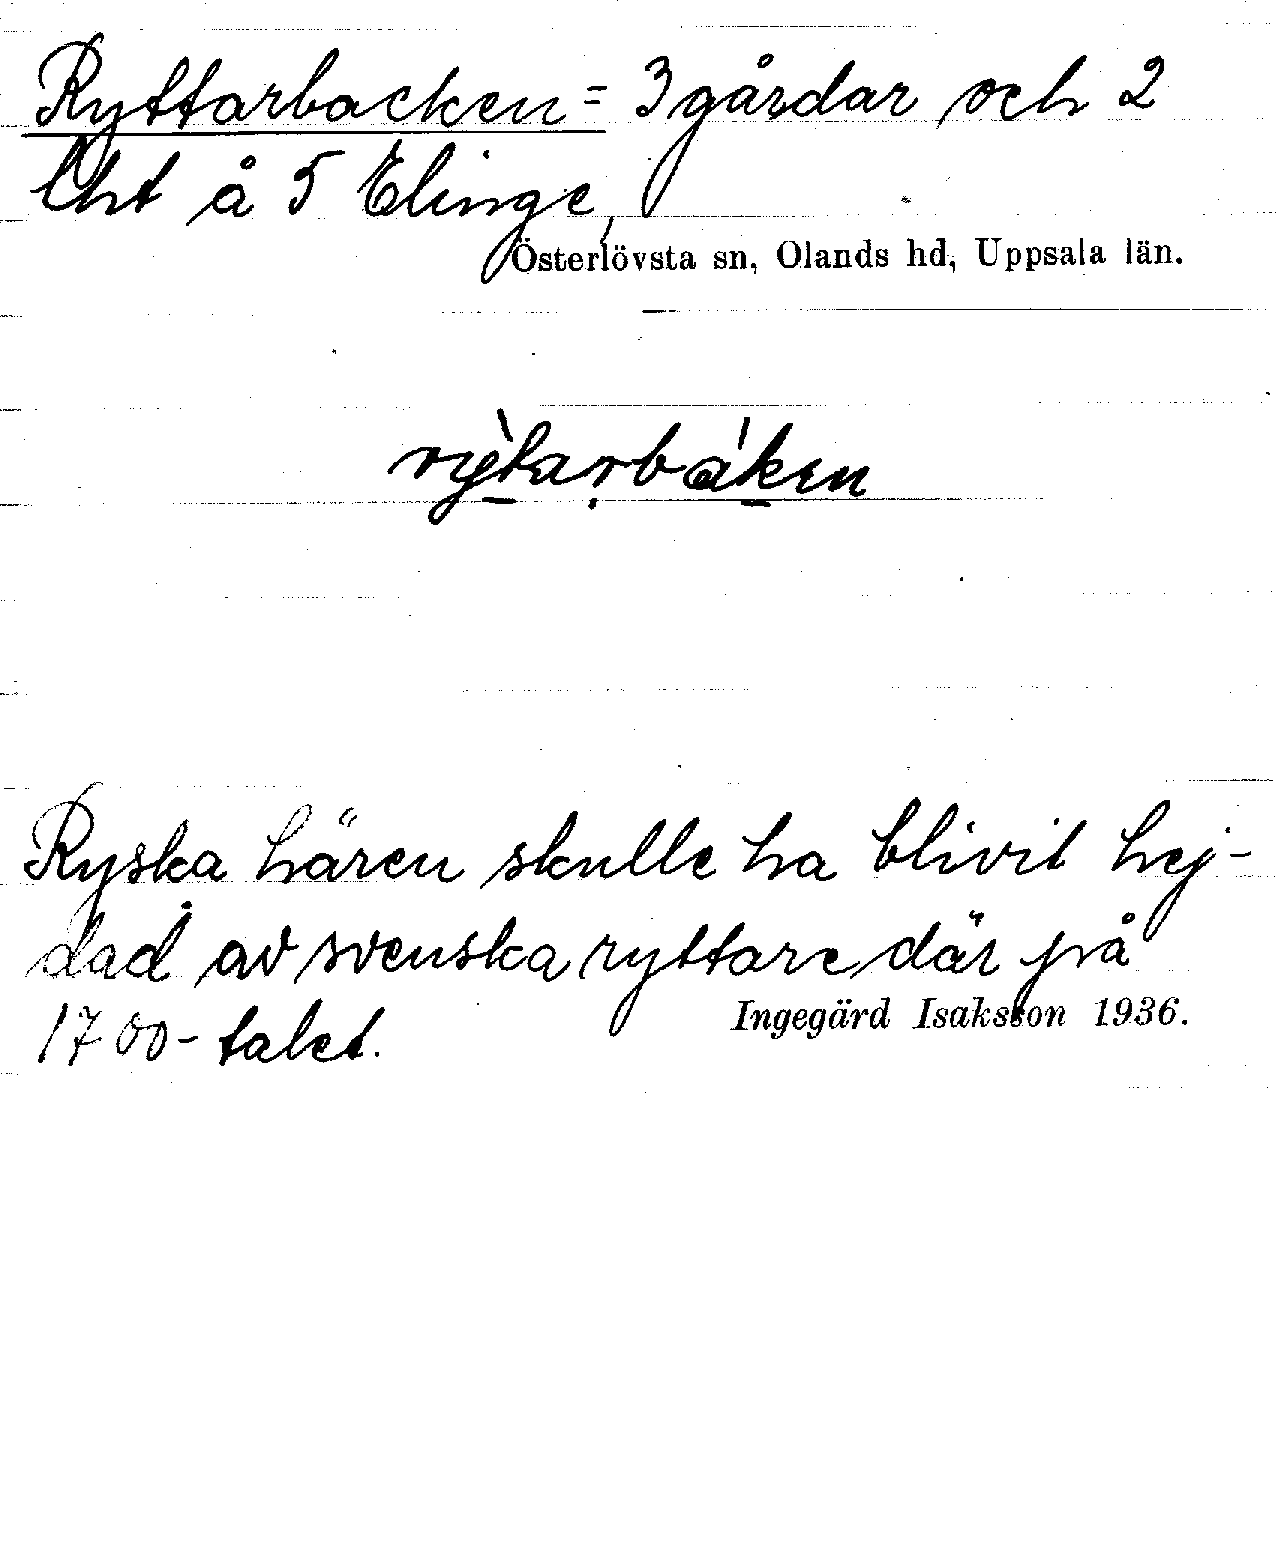 Ryttarbacken = 3 gårdar och 2
lht å 5 Elinge,
Österlövsta sn, Olands hd, Uppsala län.
rỳtarbáken
Ryska hären skulle ha blivit hej-
dad av svenska ryttare där på
1700-talet.
Ingegärd Isaksson 1936.